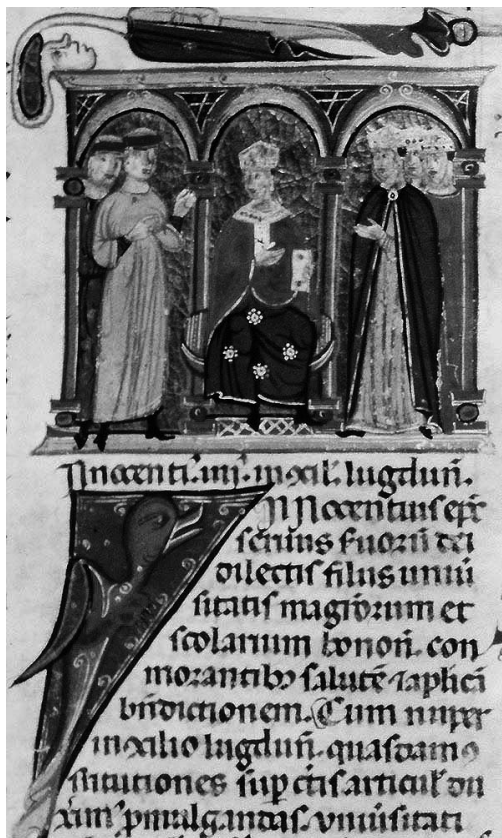 Innocenti. iiij. in ↄcil. lugdun̄.
INnocentius ep̄c
seruus s̄uoꝝ dei
dilectis filiis uniu̾
sitatis magr̄orum et
scolarium bonon̄. con
morantibꝫ salutē ⁊ ap̄licā
bn̄dictionem. Cum nuper
in ↄcilio lugdun̄. quasdam ↄ
stitutiones suꝑ c̄tis articul̾ du
xim̾ ꝓmulgandas. uniu̾sitati